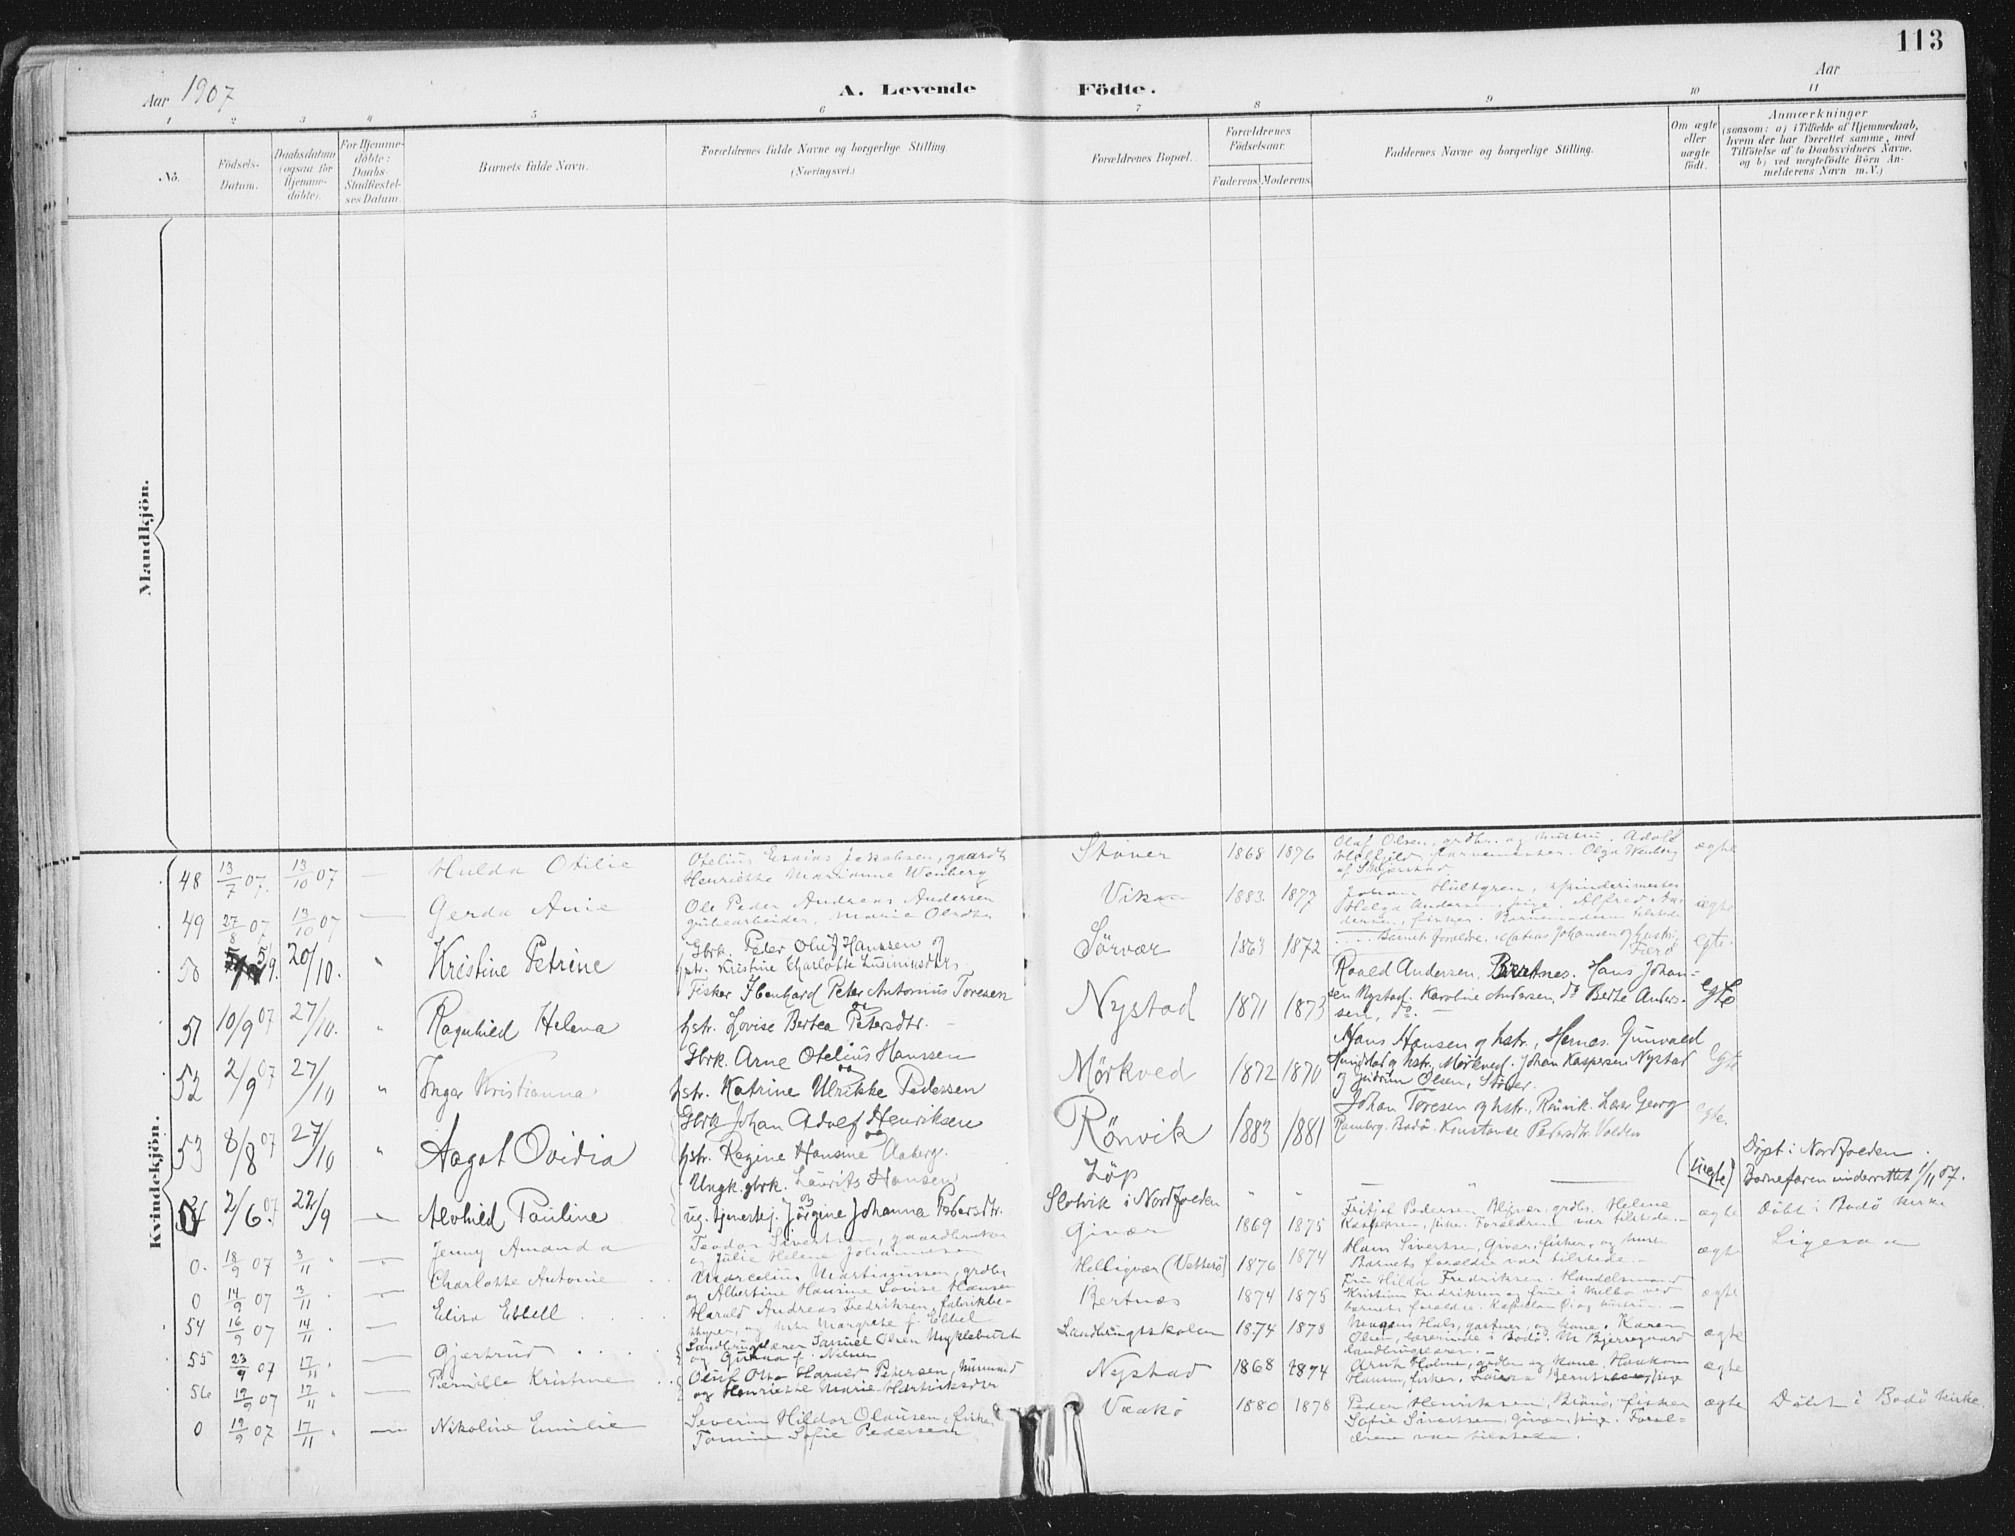 113
Aar 1907
A. Levende Födte.
Aar
1 2 3 4 5 6 7 8 9 10 11
No.
Födsels-Datum.
Daabsdatum (ogsaa for Hjemme-döbte).
For Hjemme-döbte: Daabs-Stadfæstel-ses Datum.
Barnets fulde Navn.
Forældrenes fulde Navne og borgerlige Stilling. (Næringsvei.)
Forældrenes Bopæl.
Forældrenes Födselsaar.
Faderens Moderens
Faddernes Navne og borgerlige Stilling.
Om ægte eller uægte födt.
Anmærkninger
(saasom: a) i Tilfælde af Hjemmedaab, hvem der har forrettet samme, med Tilföielse af to Daabsvidners Navne, og b) ved uægtefödte Börn An-melderens Navn m.V.)
Mandkjön.
Kvindekjön.
48 13/7 07. 13/10 07 — Hulda Otilie
Otelius Esaias Jakobsen, gaardb
Henriette Marianne Wenberg
Stöver 1868 1876
Olaf Olsen, grdbr. og hustru. Adolf
Olga Wenberg
ægte
49 27/8 07 13/10 07 — Gerda Anie
Ole Peder Andreas Andersen
gribarbeider, Marie Olsdtr
1883 1877
Johan Hultgren, spinderimester
Helga Andersen, pige. Alfred An-
dersen, fisker. Barnemoderen tilstede
ægte
50 5/9. 20/10. " Kristine Petrine
Gbrk. Peter Oluf Hanssen og
hstr. Kristine Charlotte
Sörvær 1863 1872
Barnets foreldre, Matias Johansen og hustru,
egte.
51 10/9 07 27/10. " Ragnhild Helena
Fisker Ibenhard Peter Antonius Toresen
og
hstr. Lovise Bertea Petersdtr. —
Nystad 1871 1873
Roald Andersen, Bertnes. Hans Johan-
sen Nystad. Karoline Andersen, do Berte Anders-
sen, do. —
egte
52 2/9 07 27/10 " Inga Kristianna
Gbrk. Arne Otelius Hanssen
og
hstr. Katrine Ulrikke Pedersen
Mörkved 1872 1870
Hans Hansen og hstr., Hernes. Gunvald
og hstr. Mörkved. Johan Kaspersen Nystad
og Gudrun Olsen, Stöver.
egte
53 8/8 07 27/10 " Aagot Ovidia
Gbrk Johan Adolf Henriksen
og
hstr. Regine Hansine Aaberg.
Rönvik 1883 1881
Johan Toresen og hstr., Rönvik. Lars Georg
Ramberg. Bodö. Konstanse Pedersdtr. Valden
egte.
54 2/6 07. 22/9 " Alvhild Pauline
Ungk. gbrk. Laurits Hansen
og
ug. tjenestepj. Jörgine Johanna Pedersdtr.
Löp
Slotvik i Nordfolden " " — " —
(uegte)
Döpt i Nordfolden.
Barnefaren underrettet 1/11 07.
0. 18/9 07 3/11 " — Jenny Amanda
Teodor Sivertsen, gaardbruker
og Julie Helene Johannesen
Givær 1869 1875
Fritjof Pedersen Bliksvær, grdbr. Helene
Kaspersen, pike. Forældrene var tilstede. —
ægte Döbt i Bodö kirke
0 14/9 07 3/11 — Charlotte Antonie
Marcelius Martinussen, grdbr
og Albertine Hansine Lovise Hansen
Helligvær (Vetterö) 1876 1874
Hans Sivertsen, Givær, fisker, og hustru
Barnets forældre var tilstede. —
ægte Ligesaa
54 16/9 07 14/11 — Elisa Ebbell
Harald Andreas Fredriksen, fabrikbe-
styrer, og hstr Margrete f. Ebbel
Bertnæs 1874 1875
Fru Hilda Fredriksen. Handelsmand
Kristian Fredriksen og frue i Melbo ved
barnets forældre.
ægte
55 23/9 07 17/11 — Gjertrud
Landbrugslærer Samuel Olsen Myklebust
og Gunna f. Nilsen
Landbrugsskolen 1874 1878
Magnus Hals, gartner, og kone. Karen
Olsen, lærerinde i Bodö. M Bjerregaard
landbrugslærer. —
ægte
56 12/9 07 17/11 " — Pernille Kristine
Oluf Otto Harald Petersen, murmand
og Henriette Marie Hartviksdtr
Nystad 1868 1874
Arnt Holm, grdbr og kone. Haakon
Hansen, fisker. Laura Berntsen, pige
ægte
0 12/9 07 17/11 " — Nikoline Emilie
Severin Hildor Olausen, fisker
Tomine Sofie Pedersen
1880 1878
Peder Henriksen, fisker
Sofie Sivertsen, Givær, pige. Foræl-
drene var tilstede.
ægte Döbt i Bodö kirke.